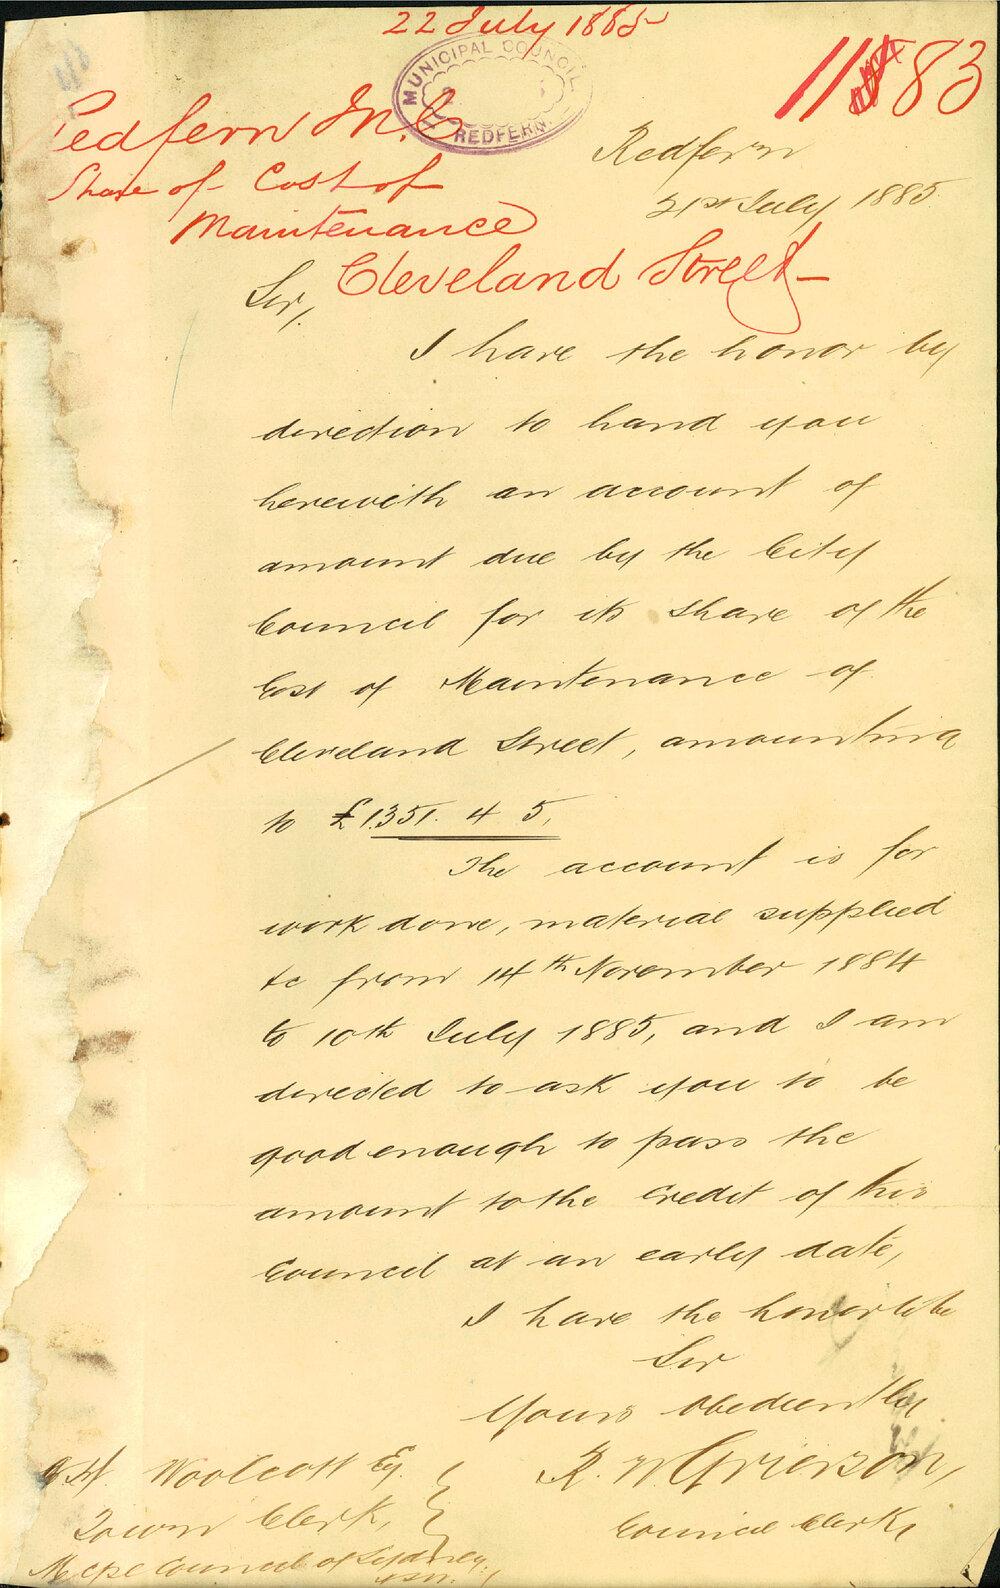 22 July 1885
1183
MUNICIPAL COUNCIL
REDFERN
Redfern M.C
Share of Cost of
Maintenance
Cleveland Street
Redfern
21st July 1885.
Sir,
I have the honor by
direction to hand you
herewith an account of
amount due by the City
Council for its share of the
Cost of Maintenance of
Cleveland Street, amounting
to £1351. 4 5.
The account is for
work done, material supplied
&c from 14th November 1884
to 10th July 1885, and I am
directed to ask you to be
good enough to pass the
amount to the credit of this
Council at an early date,
I have the honor to be
Sir
Yours obediently
R. W. Grierson,
Council Clerk
Woolcott Esq.
Town Clerk,
Mcpl Council of Sydney.